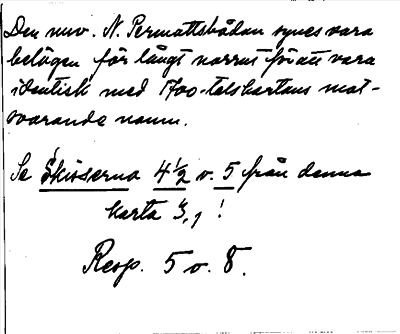 Den nuv. N. Permattsbådan synes vara
belägen för långt norrut för att vara
identisk med 1700-talskartans mot-
svarande namn.
Se skisserna 4½ o. 5 från denna
karta 3,1!
Resp. 5 o. 8.